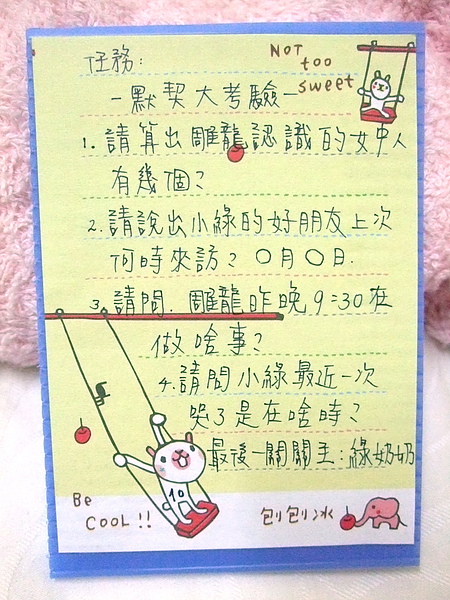 任務:
NOT
too
sweet
-默契大考驗-
1.請算出雕龍認識的女中人
有幾個?
2.請說出小綠的好朋友上次
何時來訪?〇月〇日.
3.請問.雕龍昨晚9:30在
做啥事?
4.請問小綠最近一次
哭了是在啥時?
最後一關關主:綠奶奶
10
Be
COOL!!
刨刨冰